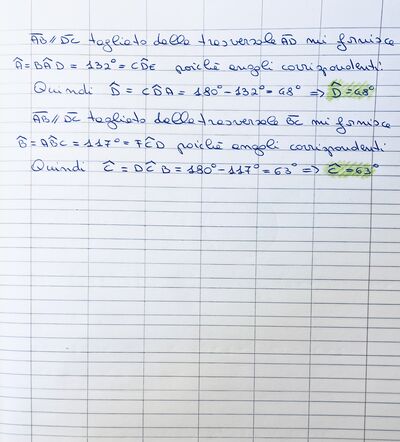 A̅B̅ // D̅C̅ tagliato dalla trasversale A̅D̅ mi fornisce
Â = DÂD = 132° = CD̂E poiché angoli corrispondenti.
Quindi D̂ = CD̂A = 180° - 132° = 48° => D̂ = 48°
A̅B̅ // D̅C̅ tagliato dalla trasversale B̅C̅ mi fornisce
B̂ = AB̂C = 117° = FĈD poiché angoli corrispondenti
Quindi Ĉ = DĈB = 180° - 117° = 63° => Ĉ = 63°